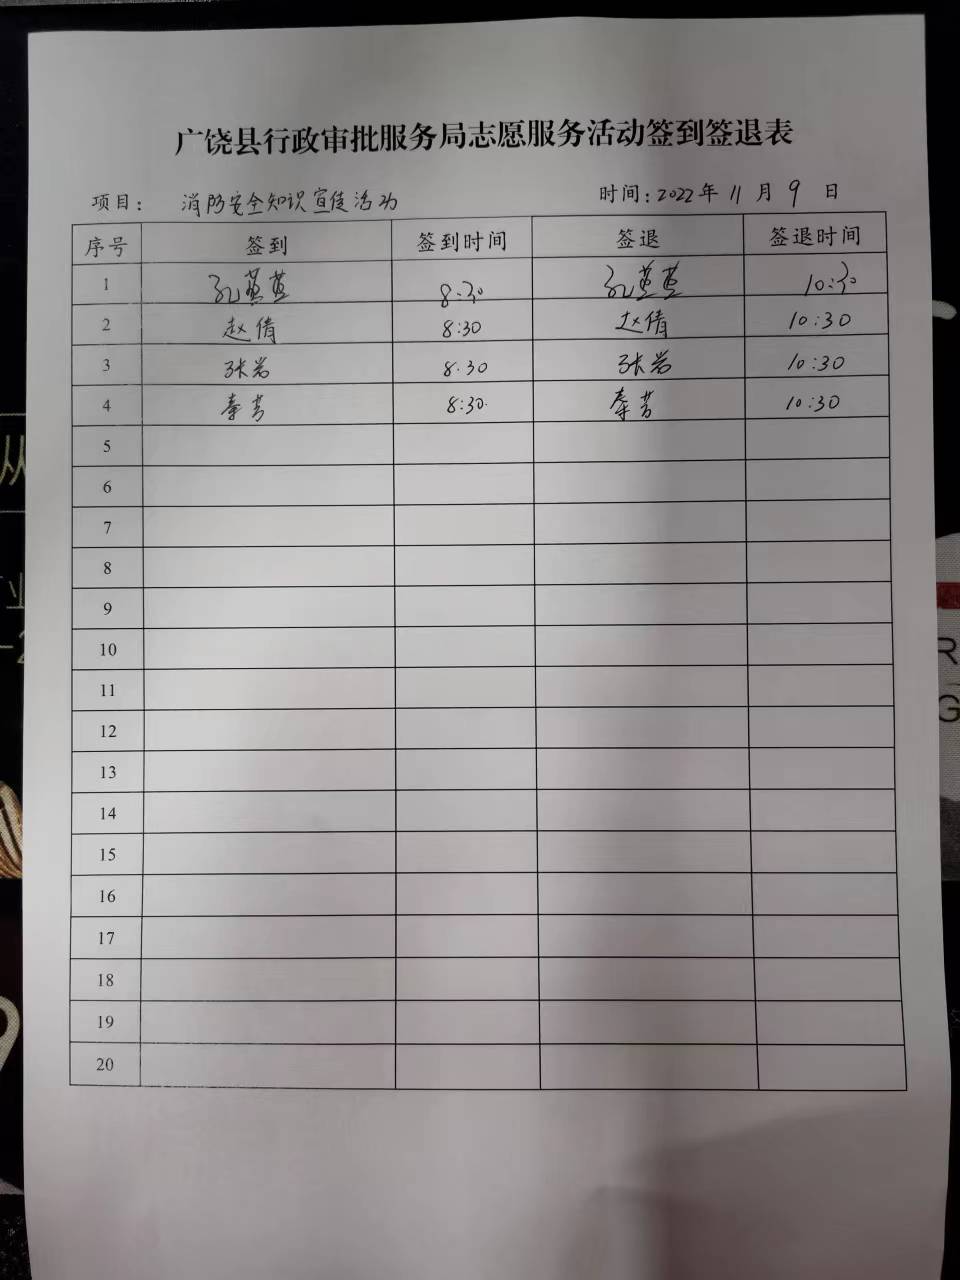 广饶县行政审批服务局志愿服务活动签到签退表
项目： 消防安全知识宣传活动 时间：2022年 11月 9日
序号 签到 签到时间 签退 签退时间
1 孔 8:30 孔 10:30
2 赵倩 8:30 赵倩 10:30
3 张岩 8.30 张岩 10:30
4 秦芳 8:30 秦芳 10:30
5
6
7
8
9
10
11
12
13
14
15
16
17
18
19
20
从
业
R
G